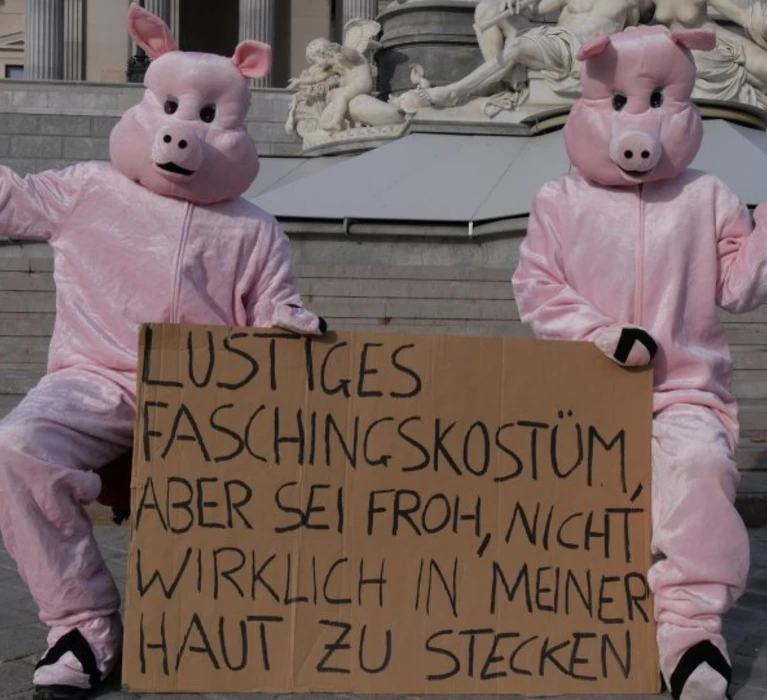 LUSTIGES
FASCHINGSKOSTÜM,
ABER SEI FROH, NICHT
WIRKLICH IN MEINER
HAUT ZU STECKEN